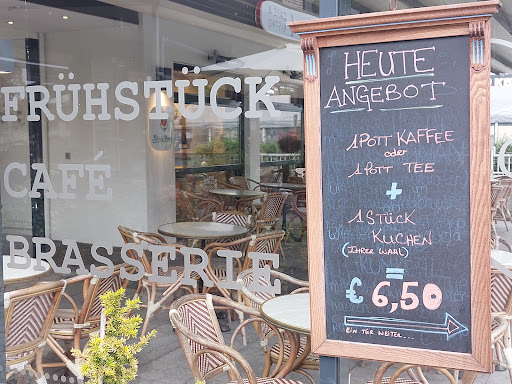 FRÜHSTÜCK
CAFÉ
BRASSERIE
HEUTE
ANGEBOT
1 POTT KAFFEE
oder
1 POTT TEE
+
1 STÜCK
KUCHEN
(IHRER WAHL)
=
€ 6,50
EIN TÜR WEITER...